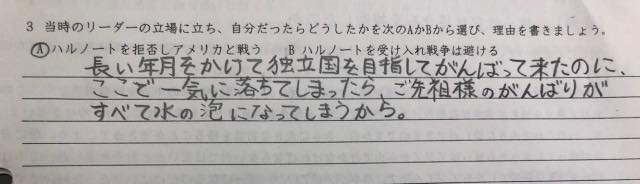 3 当時のリーダーの立場に立ち、自分だったらどうしたかを次のAかBから選び、理由を書きましょう。
Aハルノートを拒否しアメリカと戦う B ハルノートを受け入れ戦争は避ける
長い年月をかけて独立国を目指してがんばって来たのに、
ここで一気に落ちてしまったら、ご先祖様のがんばりが
すべて水の泡になってしまうから。